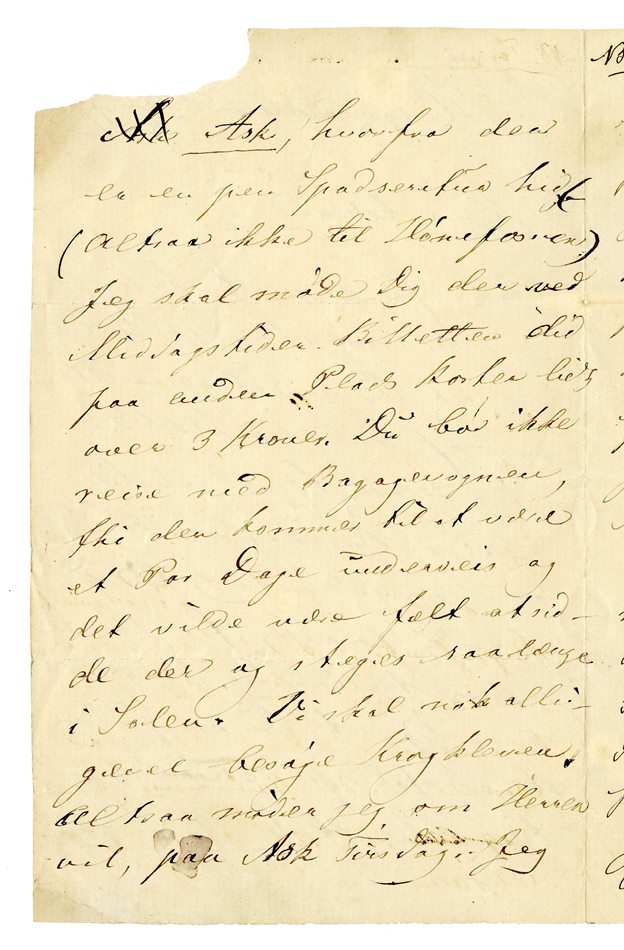 Ask, hvorfra der
er en pen Spadseretur hid
(altsaa ikke til Hönefossen.)
Jeg skal möde Dig der ved
Middagstider. Billetten did
paa anden Plads koster lidt
over 3 Kroner. Du bör ikke
reise med Bagagevognen,
thi den kommer til at være
et Par Dage underveis og
det vilde være fælt at sid-
de der og steges saalænge
i Solen. Vi skal nok alli-
gevel besöge Krogkleven,
altsaa möder jeg, om Herren
vil, paa Ask Tirsdag. Jeg